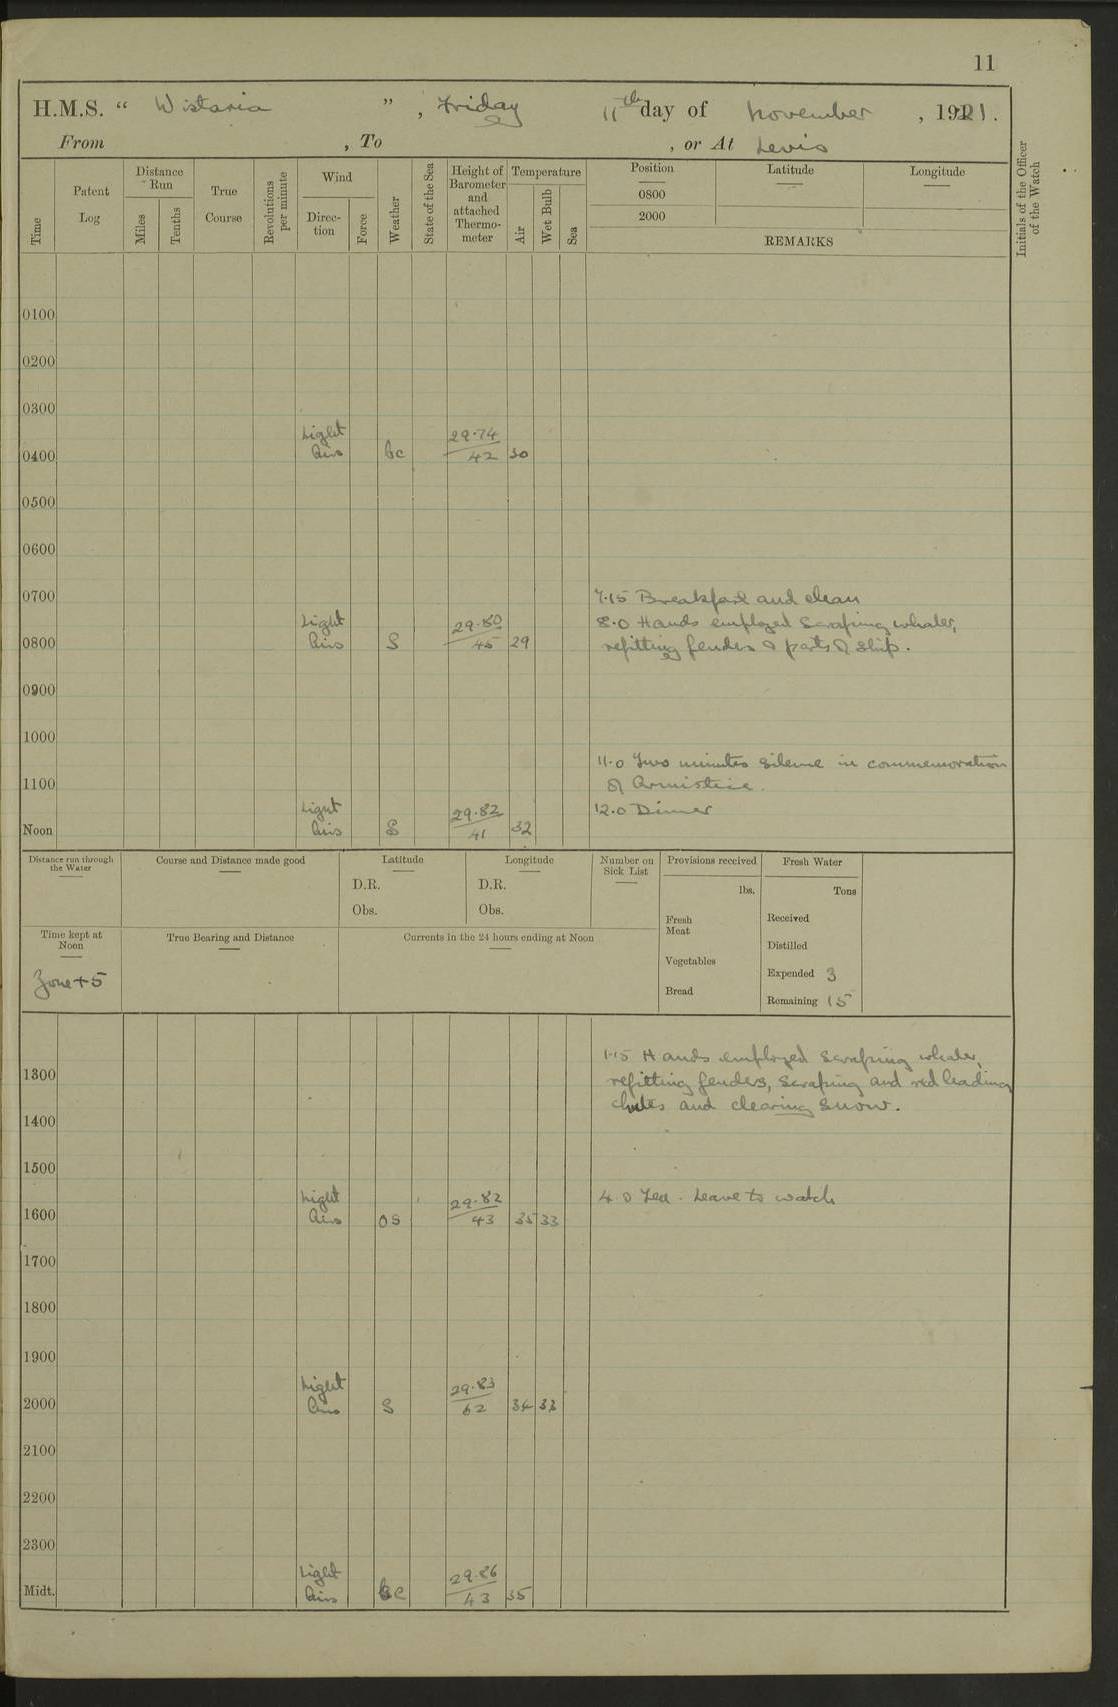 11
H.M.S. " Wistaria " , Friday 11th day of November , 1921.
From , To , or At Levis
Time
Patent Log
Distance Run
Miles
Tenths
True Course
Revolutions per minute
Wind
Direction
Force
Weather
State of the Sea
Height of Barometer and attached Thermometer
Temperature
Air
Wet Bulb
Sea
Position
0800
2000
Latitude
Longitude
REMARKS
Initials of the Officer of the Watch
0100
0200
0300
Light 29.74
0400 Airs bc 42 30
0500
0600
0700 7.15 Breakfast and clean
Light 29.80 8.0 Hands employed scraping whaler,
0800 Airs S 45 29 refitting fenders & parts of ship.
0900
1000
11.0 Two minutes silence in commemoration
1100 of Armistice.
Light 29.82 12.0 Dinner
Noon Airs S 41 32
Distance run through the Water
Course and Distance made good
Latitude
D.R.
Obs.
Longitude
D.R.
Obs.
Number on Sick List
Provisions received
lbs.
Fresh Meat
Vegetables
Bread
Fresh Water
Tons
Received
Distilled
Expended 3
Remaining 15
Time kept at Noon
Zone + 5
True Bearing and Distance
Currents in the 24 hours ending at Noon
1.15 Hands employed scraping whaler,
1300 refitting fenders, scraping and red leading
chutes and clearing snow.
1400
1500
Light 29.82 4.0 Tea. Leave to watch
1600 Airs os 43 35 33
1700
1800
1900
Light 29.83
2000 Airs S 62 34 33
2100
2200
2300
Light 29.86
Midt. Airs bc 43 35